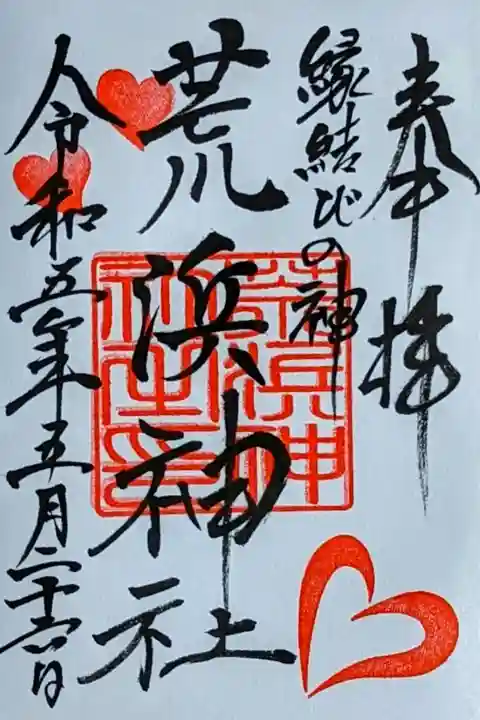 奉拝
縁結びの神
荒浜神社
令和五年五月二十六日
荒浜神
社之印